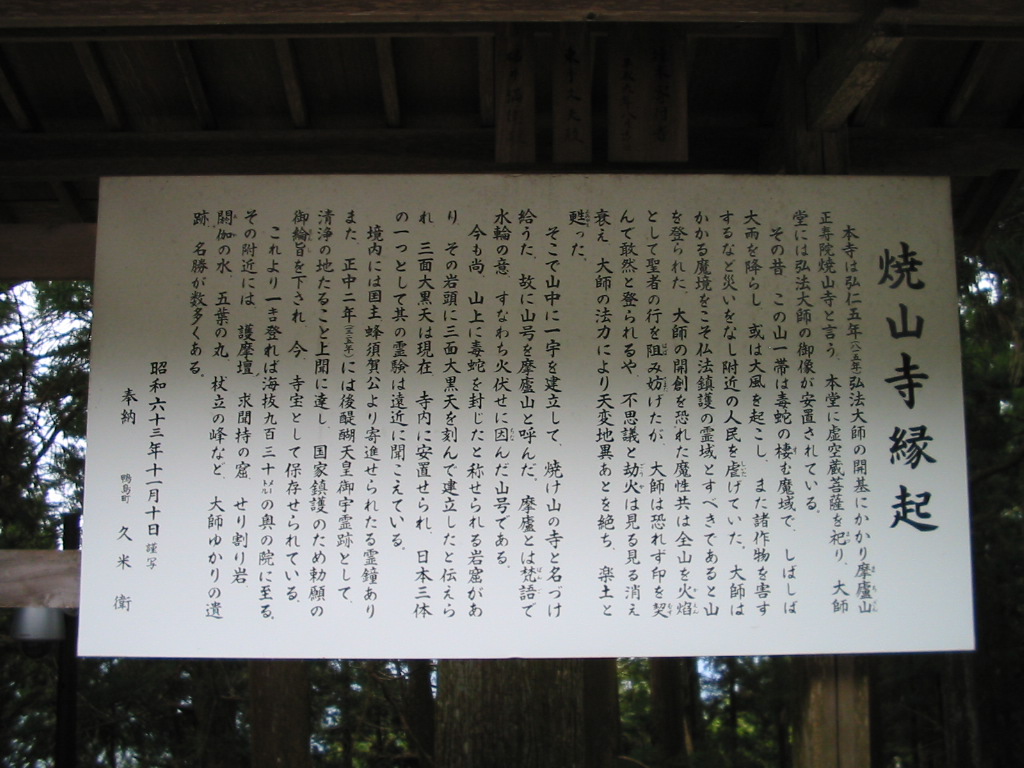 焼山寺縁起
本寺は弘仁五年(八一五年)弘法大師の開基にかかり摩廬山
正寿院焼山寺と言う。本堂に虚空蔵菩薩を祀り、大師
堂には弘法大師の御像が安置されている。
その昔、この山一帯は毒蛇の棲む魔域で、しばしば
大雨を降らし、或は大風を起こし、また諸作物を害す
するなど災いをなし附近の人民を虐げていた。大師は
かかる魔境をこそ仏法鎮護の霊域とすべきであると山
を登られた。大師の開創を恐れた魔性共は全山を火焔
として聖者の行を阻み妨げたが、大師は恐れず印を契
んで敢然と登られるや、不思議と劫火は見る見る消え
衰え、大師の法力により天変地異あとを絶ち、楽土と
甦った。
そこで山中に一宇を建立して、焼け山の寺と名づけ
給うた、故に山号を摩廬山と呼んだ。摩廬とは梵語で
水輪の意、すなわち火伏せに因んだ山号である。
今も尚、山上に毒蛇を封じたと称せられる岩窟があ
り、その岩頭に三面大黒天を刻んで建立したと伝えら
れ、三面大黒天は現在、寺内に安置せられ、日本三体
の一つとして其の霊験は遠近に聞こえている。
境内には国主蜂須賀公より寄進せられたる霊鐘あり
また、正中二年(一三二五年)には後醍醐天皇御宇霊跡として、
清浄の地たること上聞に達し、国家鎮護のため勅願の
御綸旨を下され、今、寺宝として保存せられている。
これより一キロ登れば海抜九百三十メートルの奥の院に至る。
その附近には、護摩壇、求聞持の窟、せり割り岩、
閼伽の水、五葉の丸、杖立の峰など、大師ゆかりの遺
跡、名勝が数多くある。
昭和六十三年十一月十日 謹写
奉納 鴨島町 久米 衛